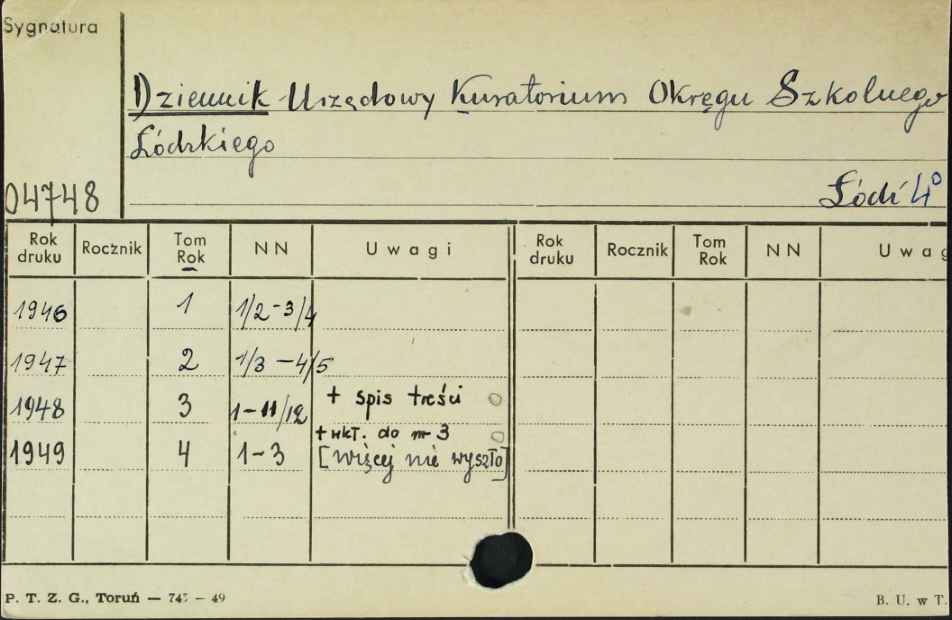 Sygnatura
Dziennik Urzędowy Kuratorium Okręgu Szkolnego
Łódzkiego
04748
Łódź 4°
Rok druku Rocznik Tom Rok NN Uwagi Rok druku Rocznik Tom Rok NN Uwag
1946 1 1/2-3/4
1947 2 1/3-4/5
1948 3 1-11/12 + spis treści
+ wkł. do nr 3
1949 4 1-3 [więcej nie wyszło]
P. T. Z. G., Toruń — 745 — 49
B. U. w T.